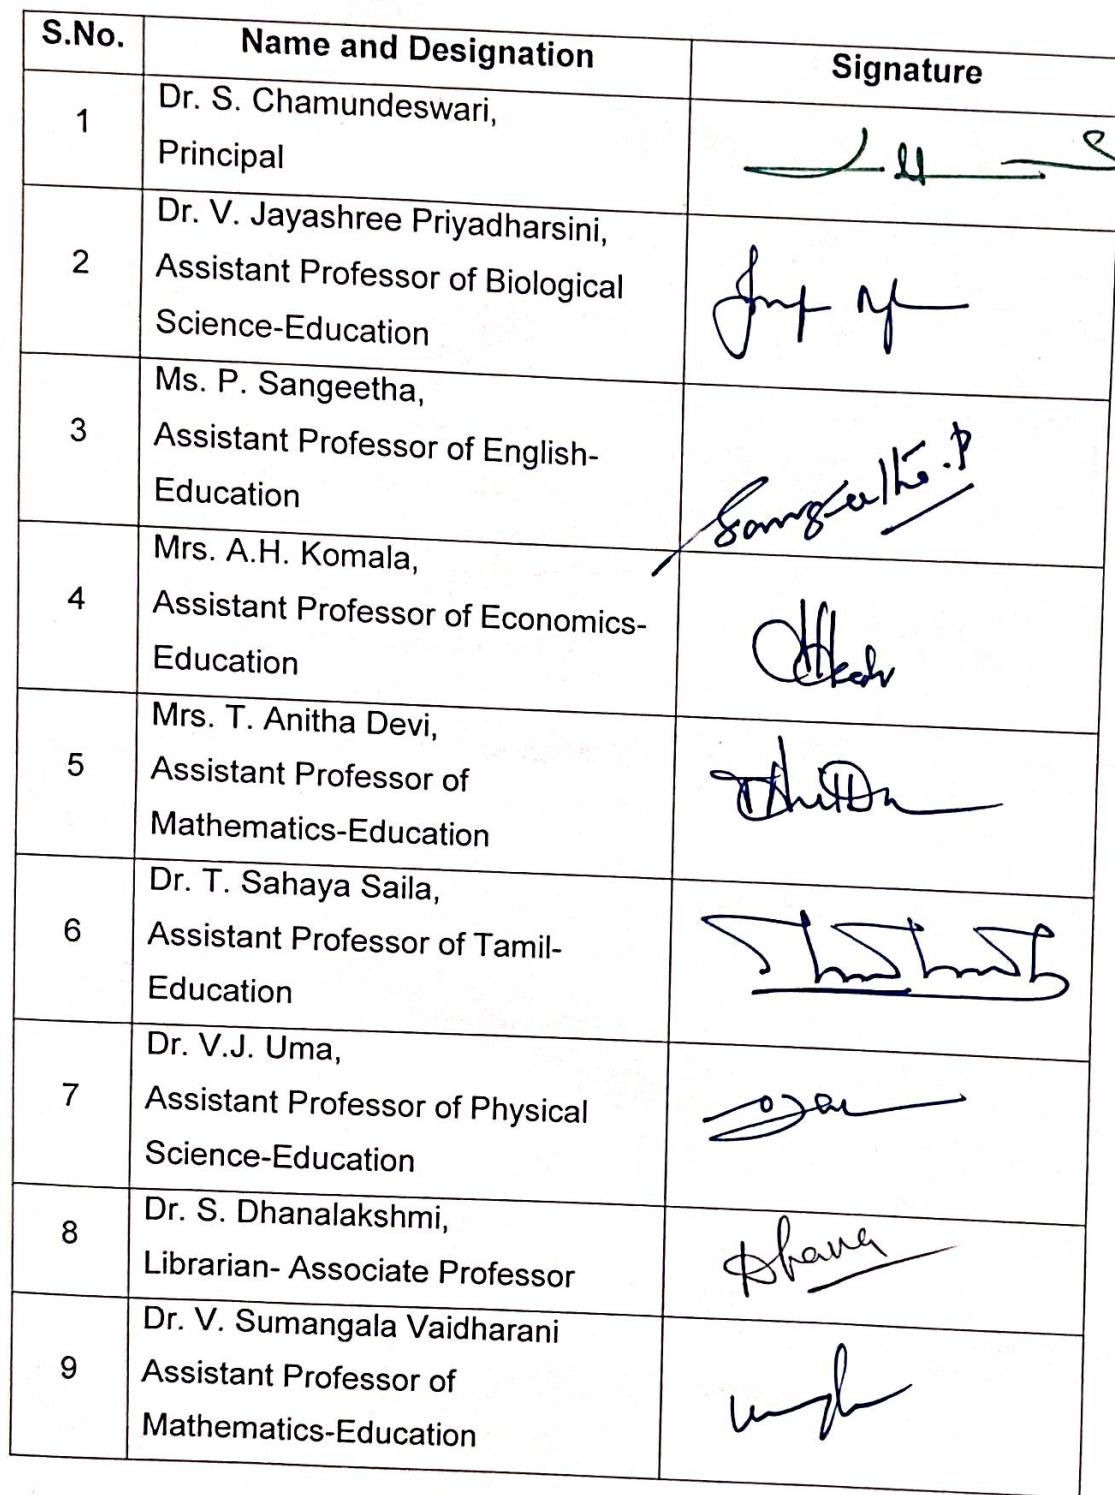 S.No. Name and Designation Signature
1 Dr. S. Chamundeswari,
Principal
2 Dr. V. Jayashree Priyadharsini,
Assistant Professor of Biological
Science-Education
3 Ms. P. Sangeetha,
Assistant Professor of English-
Education
Sangeetha.P
4 Mrs. A.H. Komala,
Assistant Professor of Economics-
Education
5 Mrs. T. Anitha Devi,
Assistant Professor of
Mathematics-Education
6 Dr. T. Sahaya Saila,
Assistant Professor of Tamil-
Education
7 Dr. V.J. Uma,
Assistant Professor of Physical
Science-Education
8 Dr. S. Dhanalakshmi,
Librarian- Associate Professor
Dhana
9 Dr. V. Sumangala Vaidharani
Assistant Professor of
Mathematics-Education